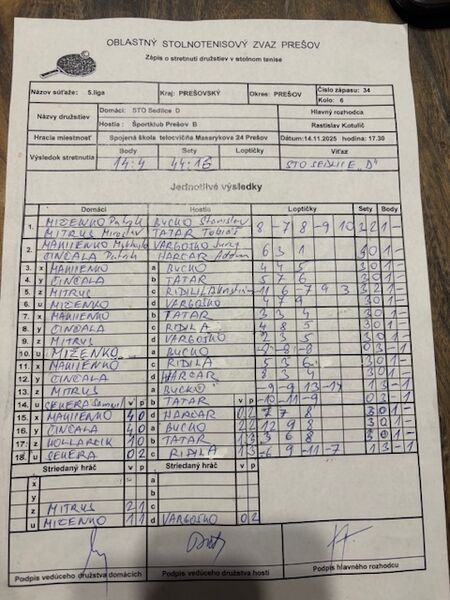 OBLASTNÝ STOLNOTENISOVÝ ZVAZ PREŠOV
Zápis o stretnutí družstiev v stolnom tenise
Názov súťaže: 5.liga Kraj: PREŠOVSKÝ Okres: PREŠOV Číslo zápasu: 34
Kolo: 6
Názvy družstiev Domáci: STO Sedlice D Hlavný rozhodca
Hostia: Športklub Prešov B Rastislav Kotulič
Hracia miestnosť Spojená škola telocvičňa Masarykova 24 Prešov Dátum:14.11.2025 hodina: 17.30
Výsledok stretnutia Body Sety Loptičky Víťaz
14:4 44:16 STO SEDLICE "D"
Jednotlivé výsledky
Domáci Hostia Loptičky Sety Body
1. MIŽENKO Patryk BUCKO Stanislav 8 -7 8 -9 10 3 2 1 -
MITRUS Miroslav TATAR Tobiáš
2. VARGOŠKO Juraj 6 3 1 3 0 1 -
ČINČALA Patrik HARČAR Adam
3. x a BUCKO 4 4 5 3 0 1 -
4. y ČINČALA b TATAR 5 7 6 3 0 1 -
5. z MITRUS c RIDILA 11 6 -7 9 3 3 2 1 -
6. u MIŽENKO d VARGOŠKO 4 7 9 3 0 1 -
7. x b TATAR 3 3 4 3 0 1 -
8. y ČINČALA c RIDILA 4 8 5 3 0 1 -
9. z MITRUS d VARGOŠKO 2 3 5 3 0 1 -
10. u MIŽENKO a BUCKO -8 -8 -8 0 3 - 1
11. x c RIDILA 3 0 1 -
12. y ČINČALA d HARČAR 3 3 4 3 0 1 -
13. z MITRUS a BUCKO -9 -9 13 -17 1 3 - 1
14. u SEKERA v p b TATAR v p -10 -11 -9 0 3 - 1
15. x 4 0 d HARČAR 0 2 7 7 8 3 0 1 -
16. y ČINČALA 4 0 a BUCKO 2 2 12 9 8 3 0 1 -
17. z 1 0 b TATAR 1 3 3 6 8 3 0 1 -
18. u SEKERA 0 2 c RIDILA 1 3 -6 9 -11 -7 1 3 - 1
Striedaný hráč v p Striedaný hráč v p
x a
y b
z MITRUS 2 1 c
u MIŽENKO 1 1 d VARGOŠKO 0 2
Podpis vedúceho družstva domácich Podpis vedúceho družstva hostí Podpis hlavného rozhodcu